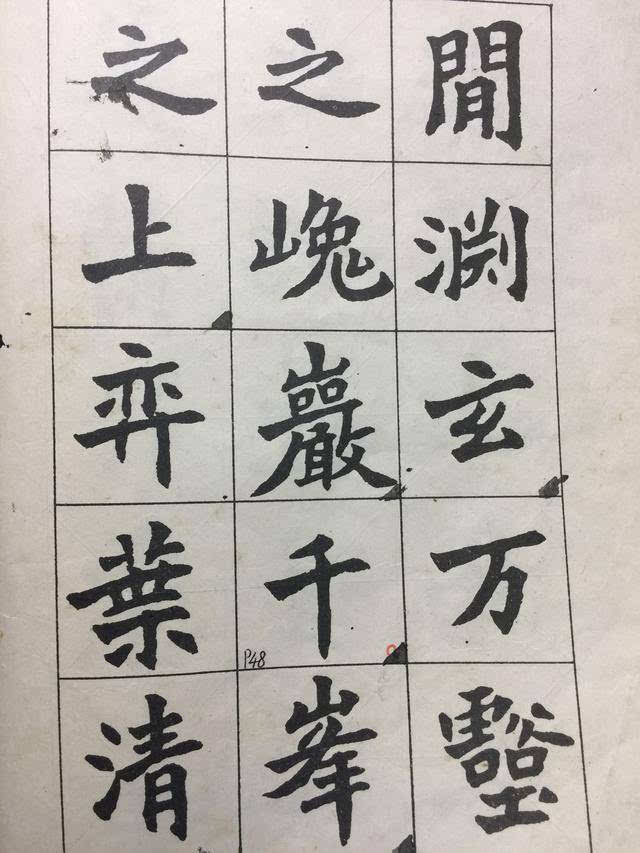 間淵玄万壑
之巉巖千峯
之上弈葉清
P48